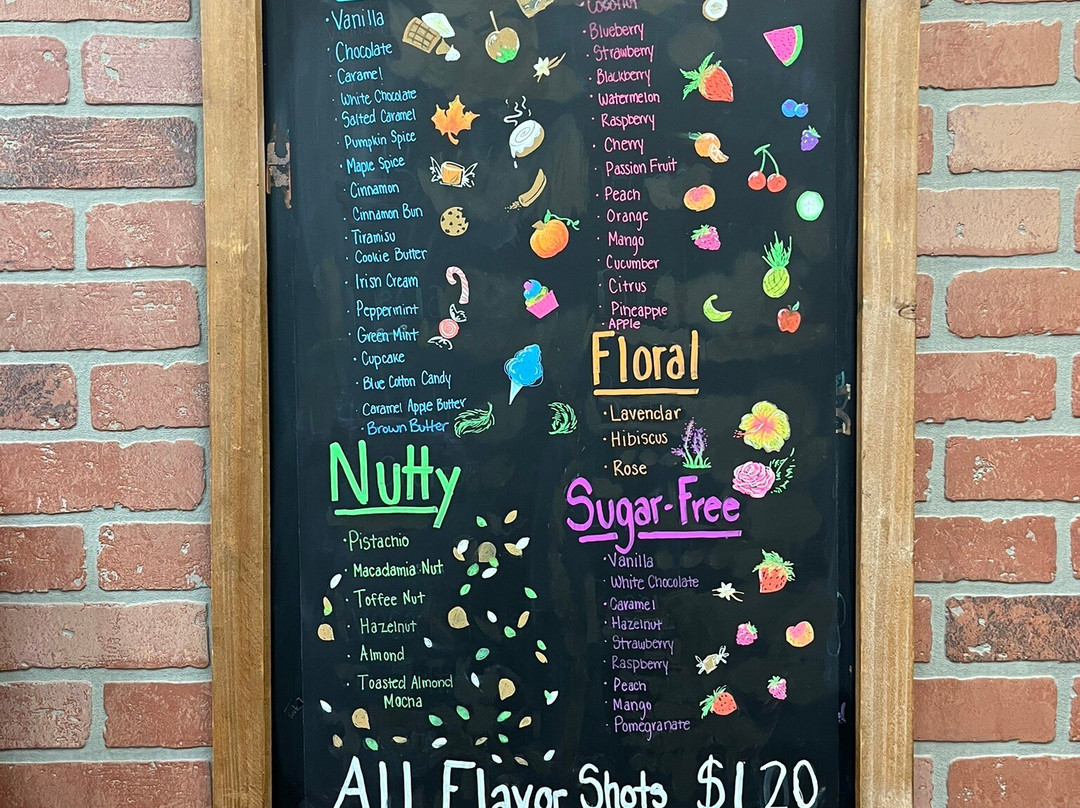 · Vanilla
· Chocolate
· Caramel
· White Chocolate
· Salted Caramel
· Pumpkin Spice
· Maple Spice
· Cinnamon
· Cinnamon Bun
· Tiramisu
· Cookie Butter
· Irish Cream
· Peppermint
· Green Mint
· Cupcake
· Blue Cotton Candy
· Caramel Apple Butter
· Brown Butter
Nutty
· Pistachio
· Macadamia Nut
· Toffee Nut
· Hazelnut
· Almond
· Toasted Almond
Mocha
· Coconut
· Blueberry
· Strawberry
· Blackberry
· Watermelon
· Raspberry
· Cherry
· Passion Fruit
· Peach
· Orange
· Mango
· Cucumber
· Citrus
· Pineapple
· Apple
Floral
· Lavendar
· Hibiscus
· Rose
Sugar-Free
· Vanilla
· White Chocolate
· Caramel
· Hazelnut
· Strawberry
· Raspberry
· Peach
· Mango
· Pomegranate
All Flavor Shots $1.20